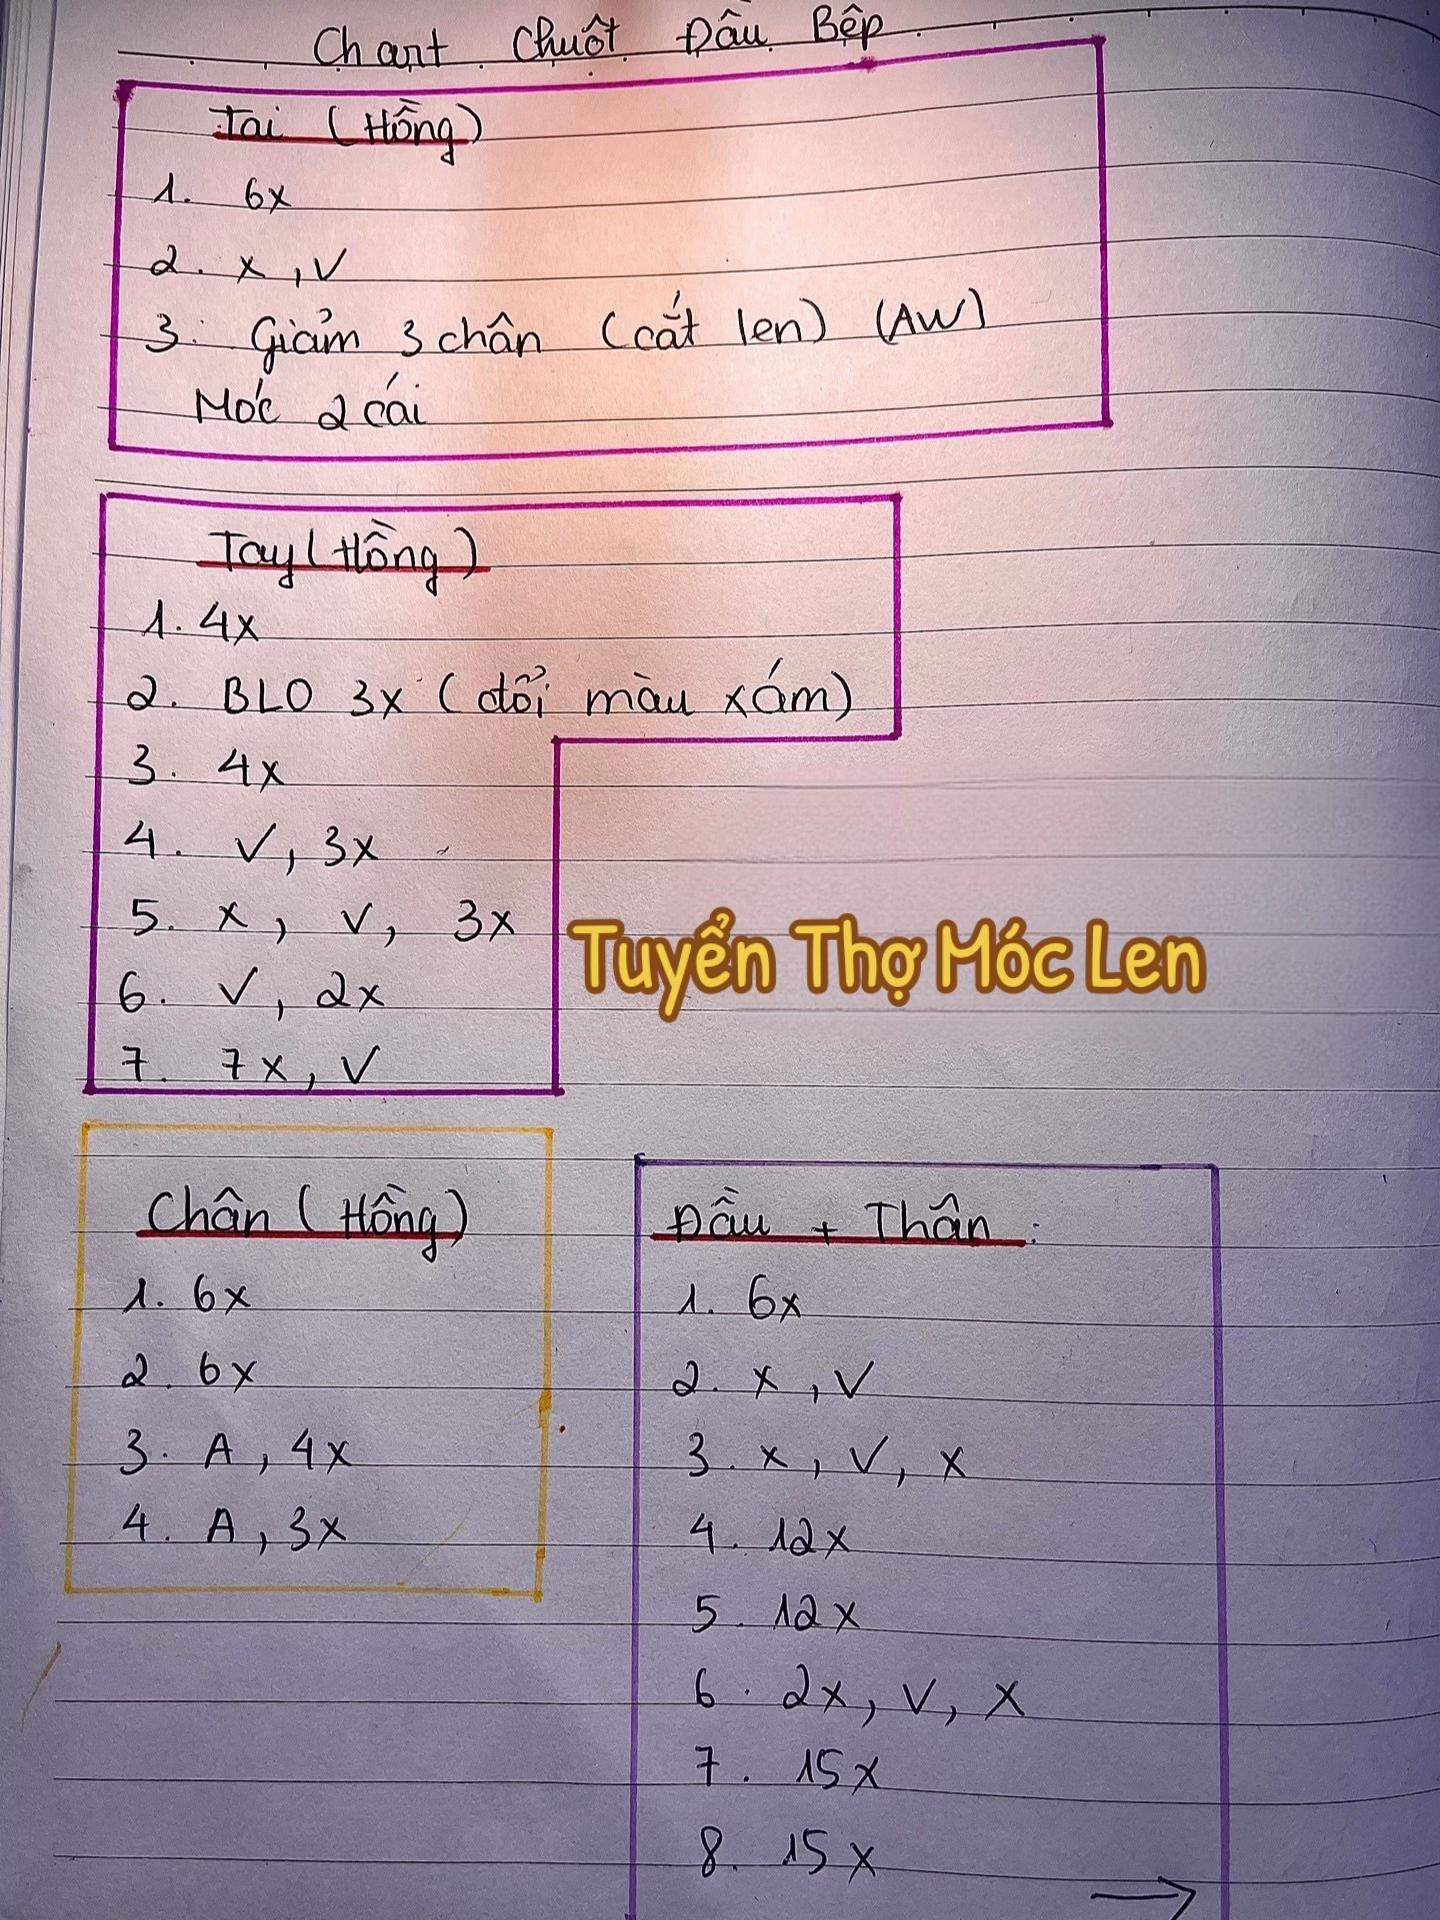 Chart Chuột Đầu Bếp
Tai (Hồng)
1. 6x
2. x, V
3. Giảm 3 chân (cắt len) (AW)
Móc 2 cái
Tay (Hồng)
1. 4x
2. BLO 3x (đổi màu xám)
3. 4x
4. V, 3x
5. x, V, 3x
6. V, 2x
7. 7x, V
Tuyển Thợ Móc Len
Chân (Hồng)
1. 6x
2. 6x
3. A, 4x
4. A, 3x
Đầu + Thân:
1. 6x
2. x, V
3. x, V, x
4. 12x
5. 12x
6. 2x, V, x
7. 15x
8. 15x
→